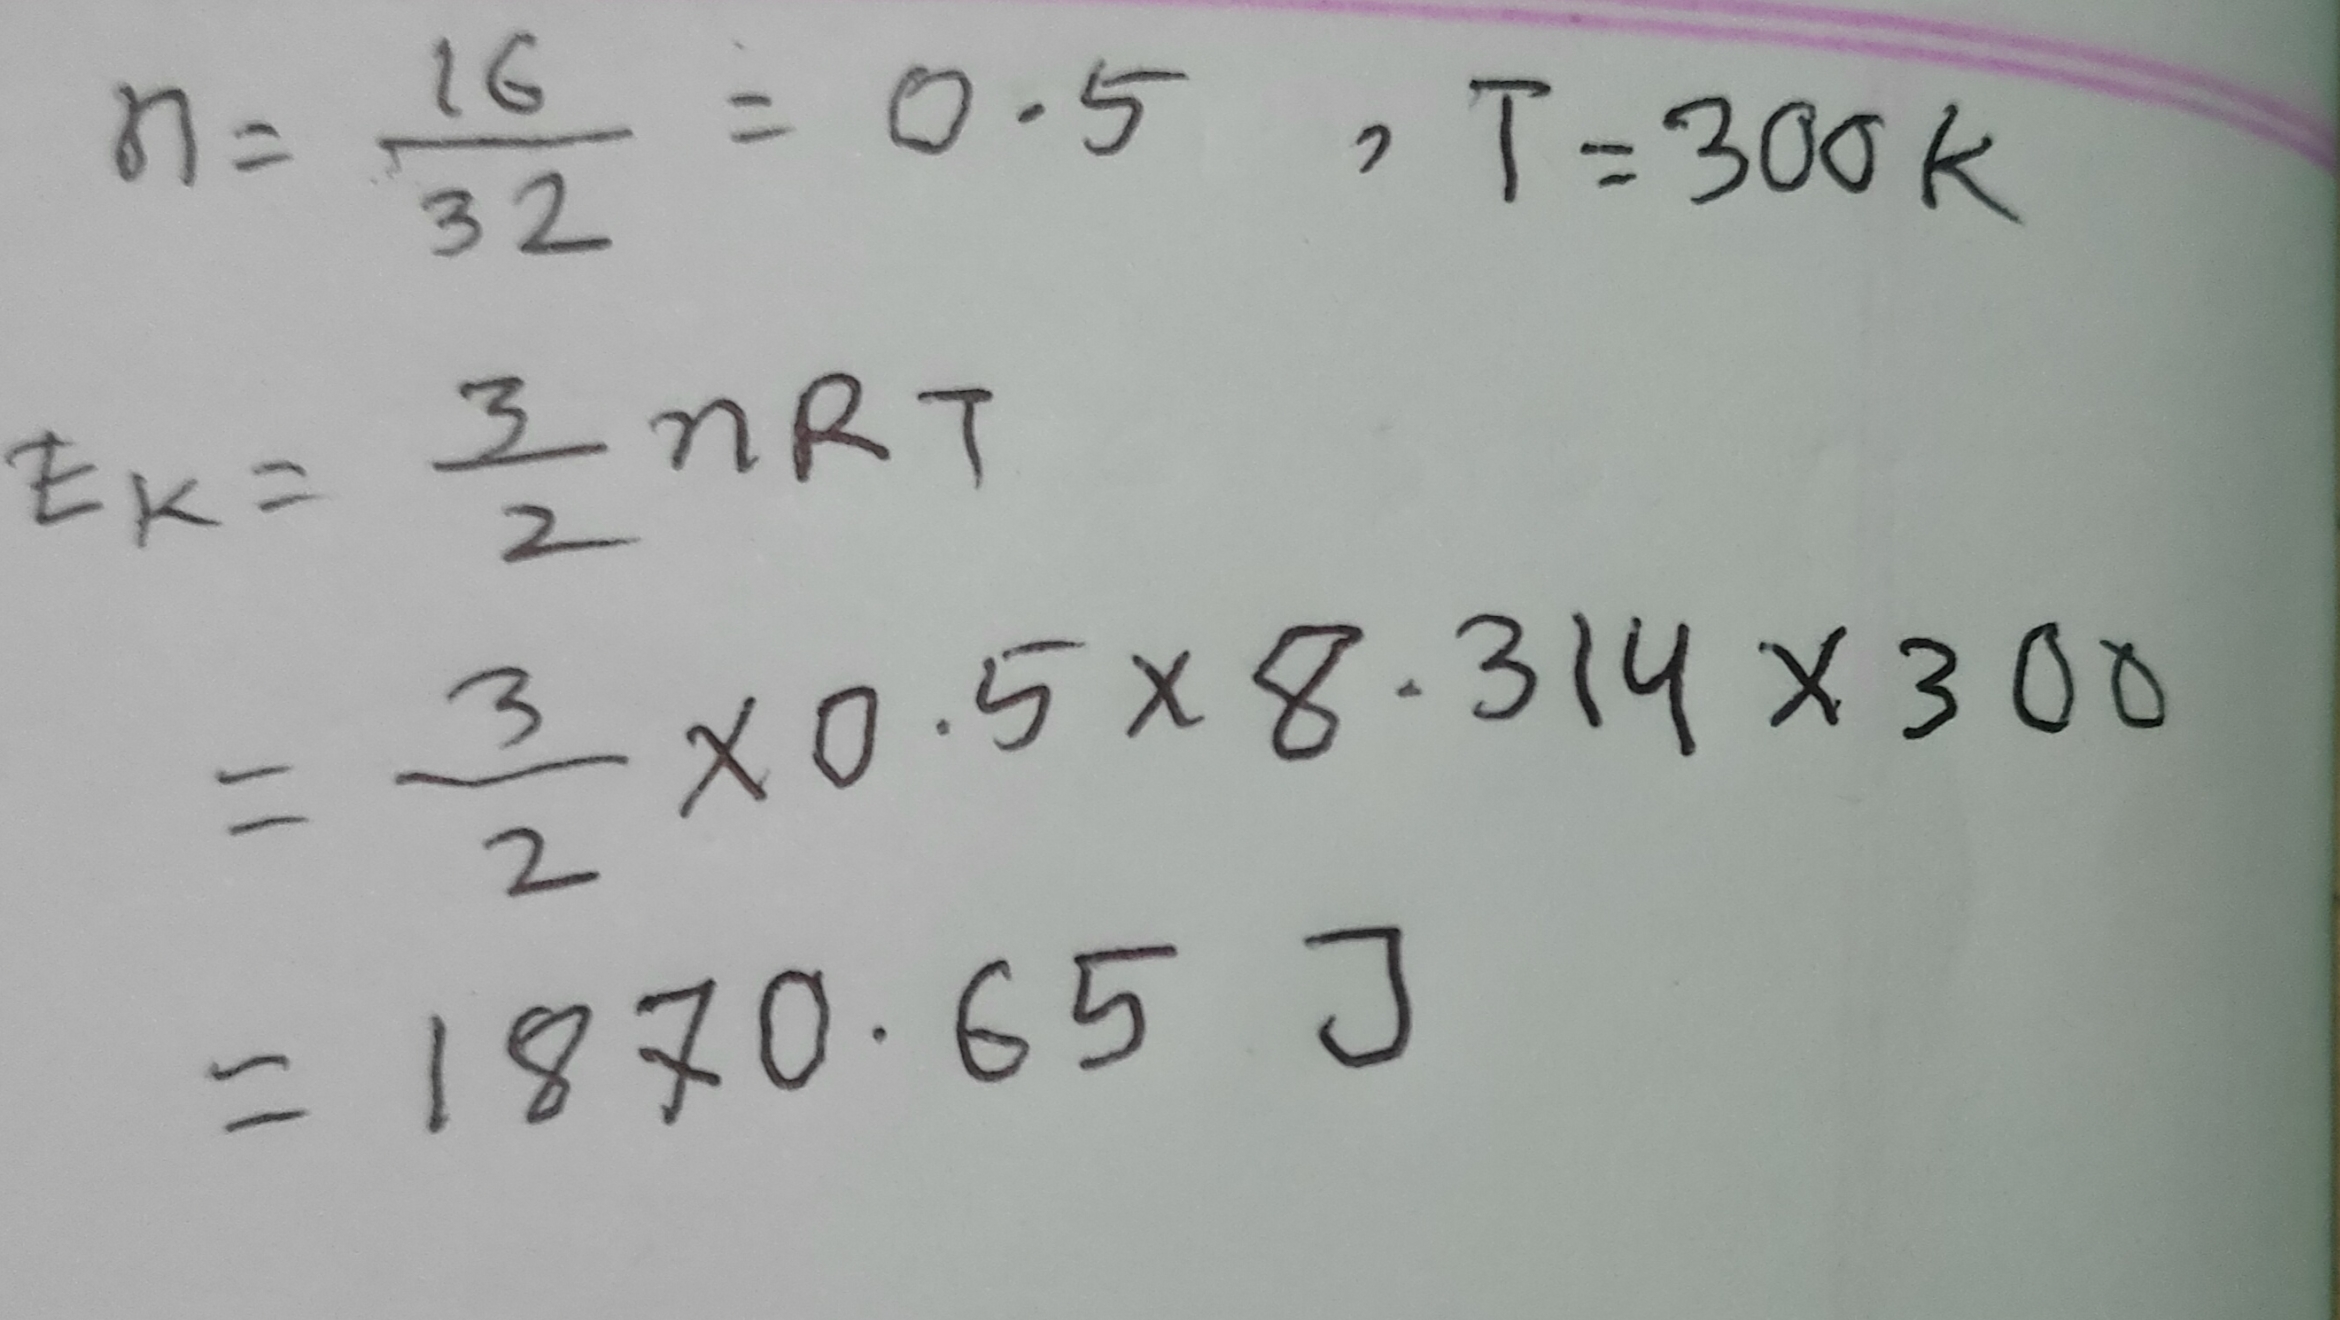 n = 16/32 = 0.5 , T = 300 K
EK = 3/2 nRT
= 3/2 × 0.5 × 8.314 × 300
= 1870.65 J